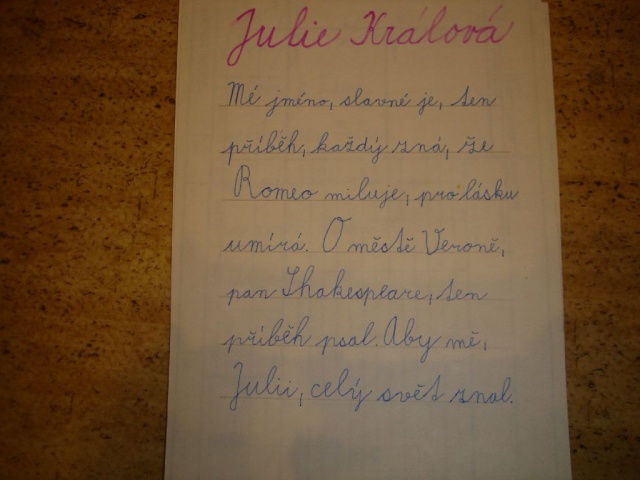 Julie Králová
Mé jméno, slavné je, ten
příběh, každý zná, že
Romeo miluje, pro lásku
umírá. O městě Veroně,
pan Shakespeare, ten
příběh psal. Aby mě,
Julii, celý svět znal.